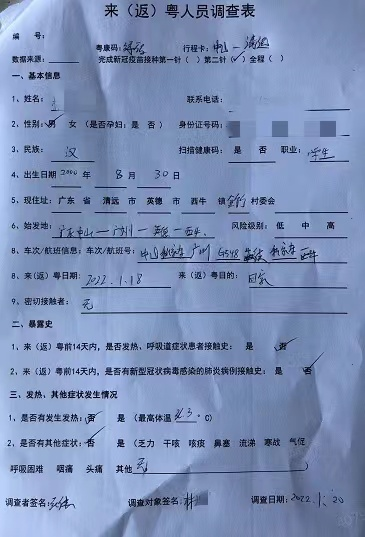 来（返）粤人员调查表
编 号：
粤康码：绿码 行程卡：中山—清远
数据来源： 完成新冠疫苗接种第一针（ ）第二针（✓）全程（ ）
一、基本信息
1、姓名： 联系电话：
2、性别：男 女 （是否孕妇：是 否 ） 身份证号码：
3、民族： 汉 扫描健康码： 是 否 职业：学生
4、出生日期 2000 年 8 月 30 日
5、现住址：广东 省 清远 市 英德 市 西牛 镇 村委会
6、始发地：广东中山—广州—英德—西牛 风险级别：低 中 高
8、车次/航班信息：车次/航班号：中山 广州 西牛
8、来（返）粤日期：2022.1.18 来（返）粤目的：回家
9、密切接触者： 无
二、暴露史
1、来（返）粤前14天内，是否发热、呼吸道症状患者接触史： 是 否
2、来（返）粤前14天内，是否有新型冠状病毒感染的肺炎病例接触史： 是 否
三、发热、其他症状发生情况
1、是否有发生发热：否 是 （最高体温 36.3 °C）
2、是否有其他症状：否 是（乏力 干咳 咳痰 鼻塞 流涕 寒战 气促
呼吸困难 咽痛 头痛 其他 无 ）
调查者签名： 调查对象签名：林 调查日期：2022.1.20